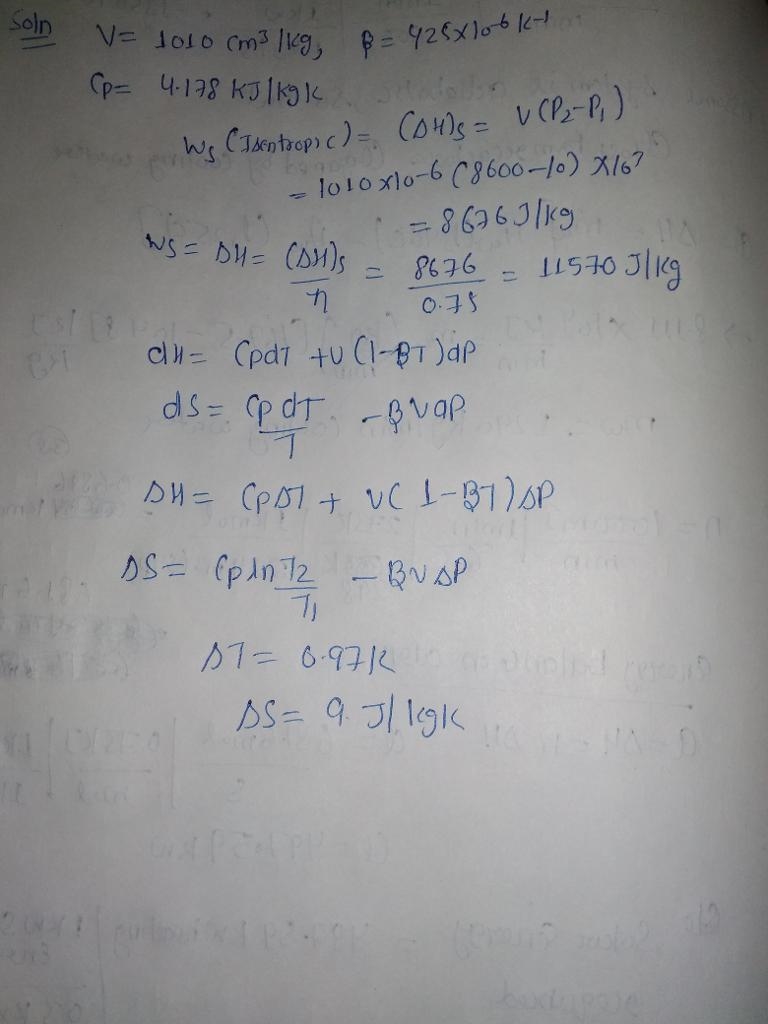 Soln V = 1010 cm³/kg, β = 425×10⁻⁶ K⁻¹
Cp = 4.178 KJ/kgK
Ws (Isentropic) = (ΔH)s = V(P₂-P₁)
= 1010×10⁻⁶ (8600-10) ×10³
= 8676 J/kg
Ws = ΔH = (ΔH)s/η = 8676/0.75 = 11570 J/kg
dH = CpdT + V(1-βT)dP
dS = CpdT/T - βVdP
ΔH = CpΔT + V(1-βT)ΔP
ΔS = Cp ln T₂/T₁ - βVΔP
ΔT = 0.97K
ΔS = 9. J/kgK